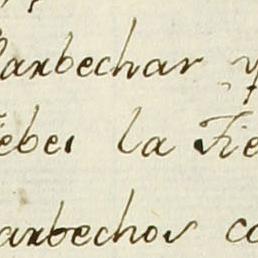 Barbechar y
ebes la Tie
arbechos co